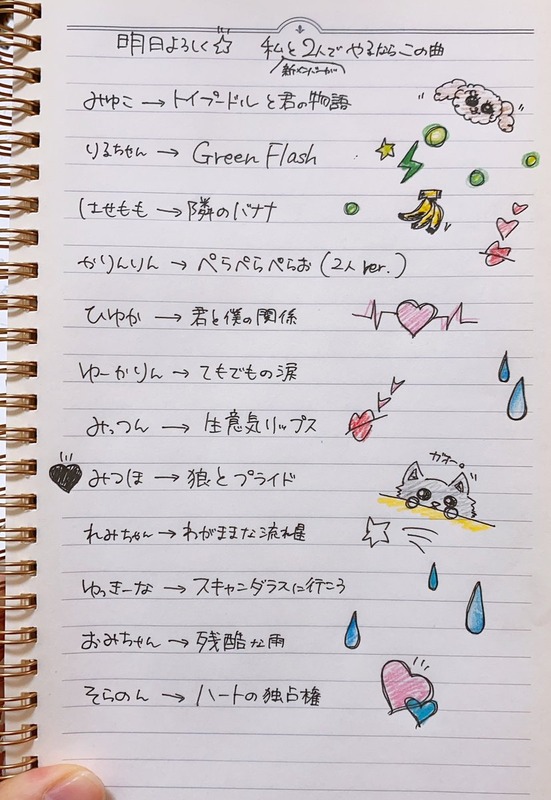 明日よろしく☆ 私と2人でやるならこの曲
新メンバーが
みゆこ → トイプードルと君の物語
りるちゃん → Green Flash
はせもも → 隣のバナナ
かりんりん → ぺらぺらぺらお (2人ver.)
ひゆか → 君と僕の関係
ゆーかりん → てもでもの涙
みっつん → 生意気リップス
みつほ → 狼とプライド
ガオー。
れみちゃん → わがままな流れ星
ゆっきーな → スキャンダラスに行こう
おみちゃん → 残酷な雨
そらのん → ハートの独占権